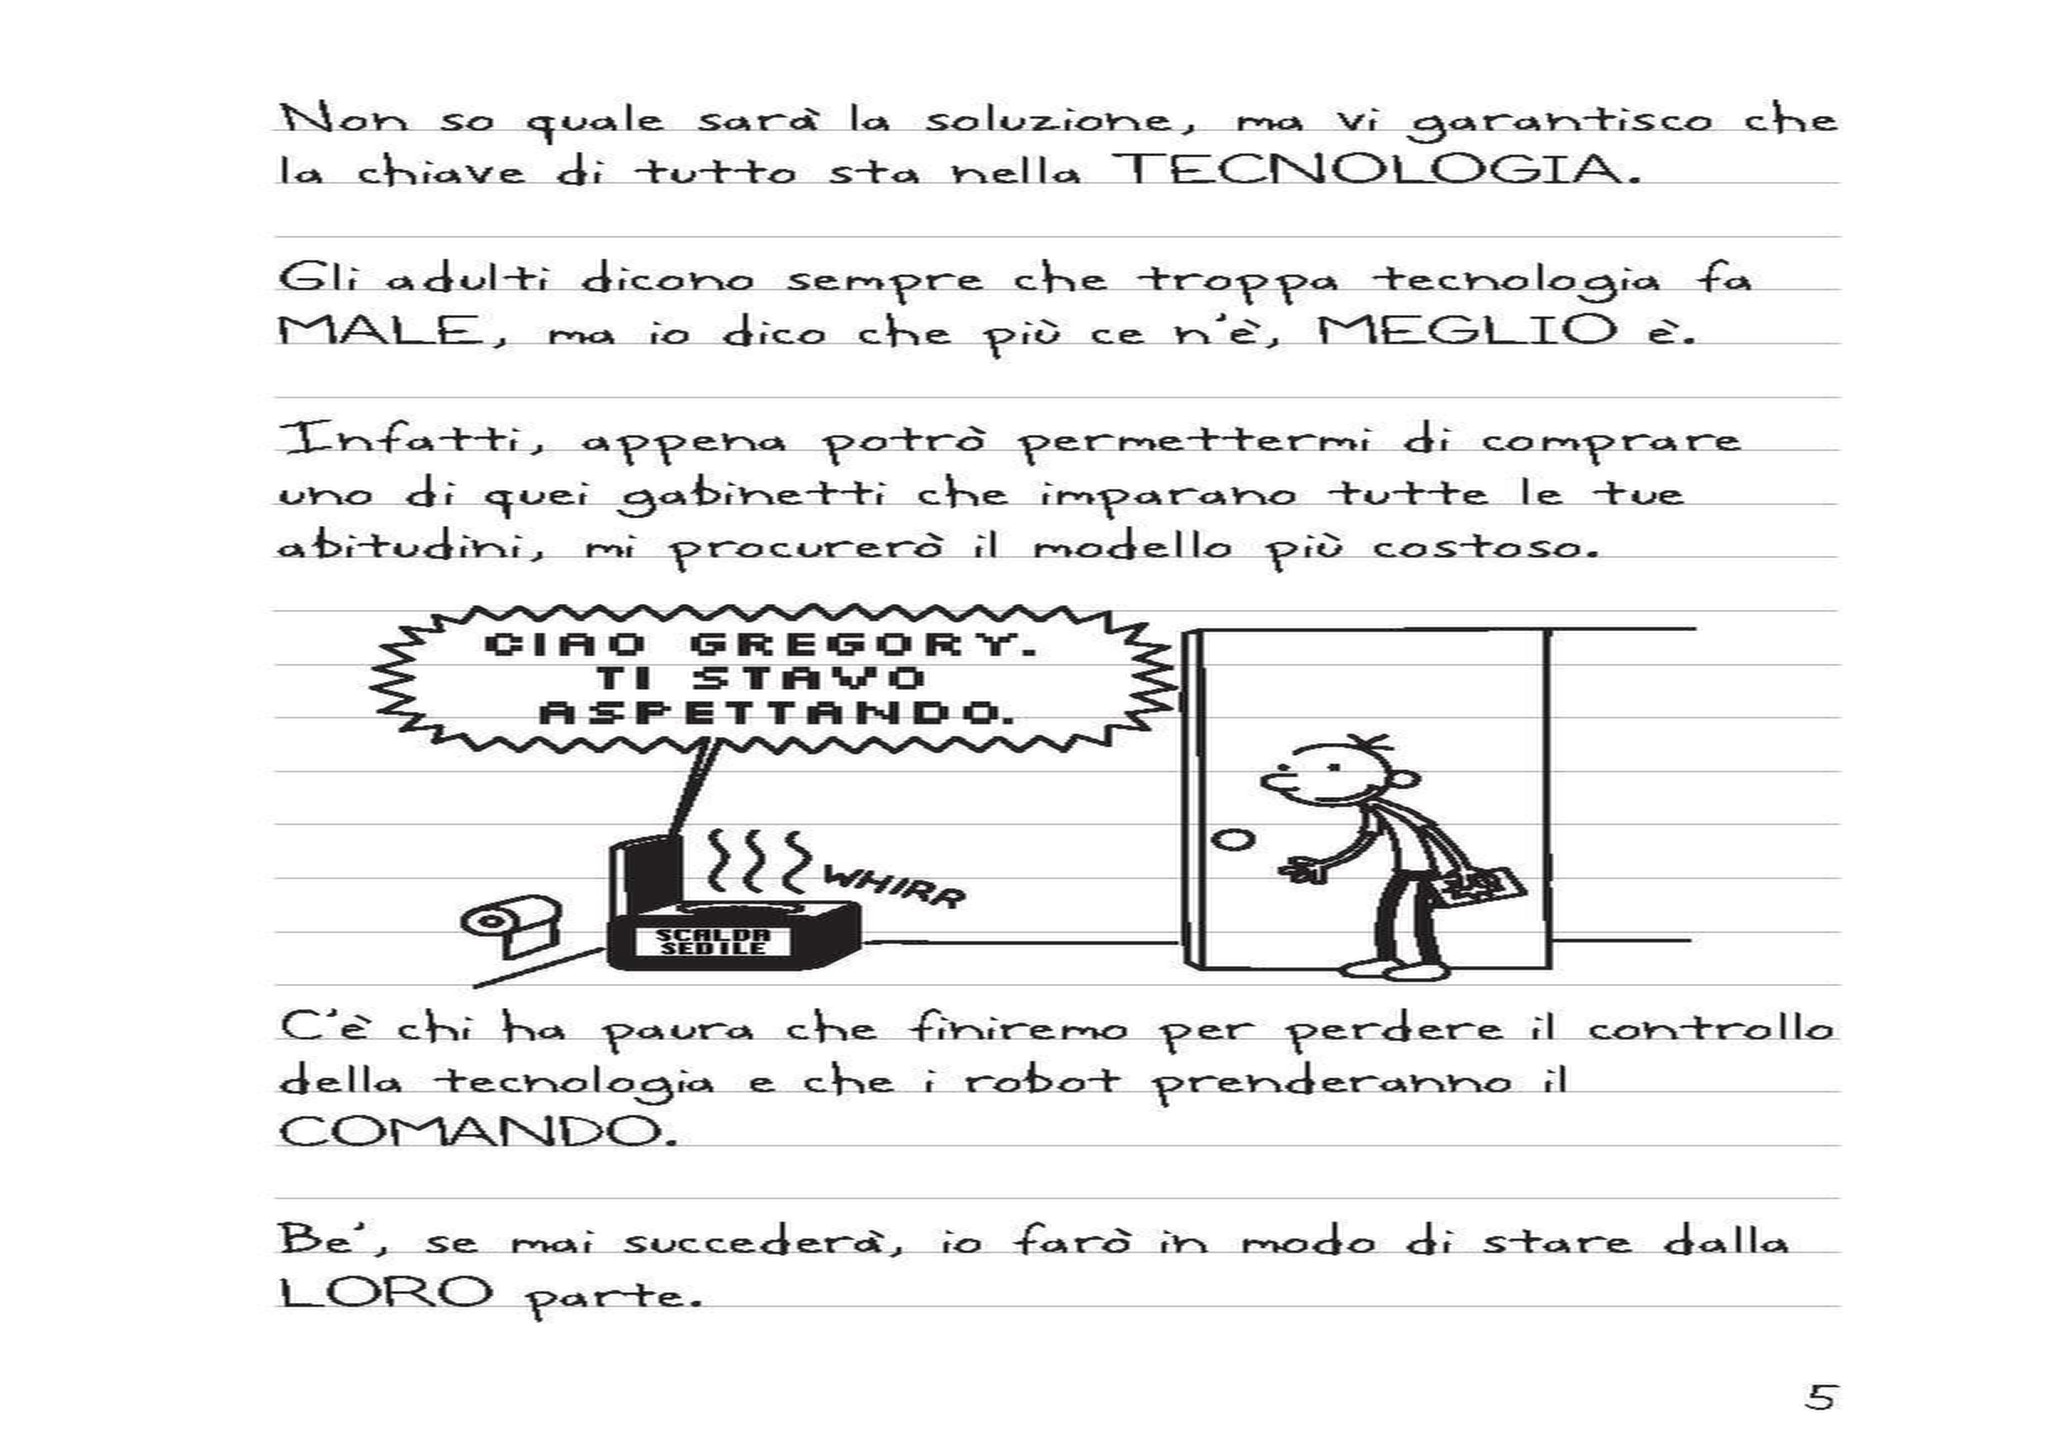 Non so quale sarà la soluzione, ma vi garantisco che
la chiave di tutto sta nella TECNOLOGIA.
Gli adulti dicono sempre che troppa tecnologia fa
MALE, ma io dico che più ce n'è, MEGLIO è.
Infatti, appena potrò permettermi di comprare
uno di quei gabinetti che imparano tutte le tue
abitudini, mi procurerò il modello più costoso.
CIAO GREGORY.
TI STAVO
ASPETTANDO.
WHIRR
SCALDA
SEDILE
C'è chi ha paura che finiremo per perdere il controllo
della tecnologia e che i robot prenderanno il
COMANDO.
Be', se mai succederà, io farò in modo di stare dalla
LORO parte.
5